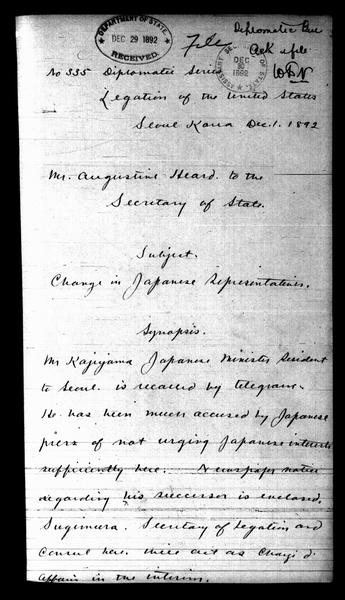 DEPARTMENT OF STATE,
DEC 29 1892
RECEIVED.
File
Diplomatic Bu
Ack & file
DEC
1892
No 335 Diplomatic Series
Legation of the United States
Seoul Korea Dec. 1. 1892
Mr. Augustine Heard. to the
Secretary of State.
Subject.
Change in Japanese Representatives.
Synopsis.
Mr Kajiyama Japanese Minister Resident
to Seoul is recalled by telegram.
He has been much accused by Japanese
press of not urging Japanese interests
sufficiently here. Newspaper notice
regarding his successor is enclosed.
Sugimura. Secretary of Legation and
Consul here. will act as Chargé d'
Affairs in the interim.